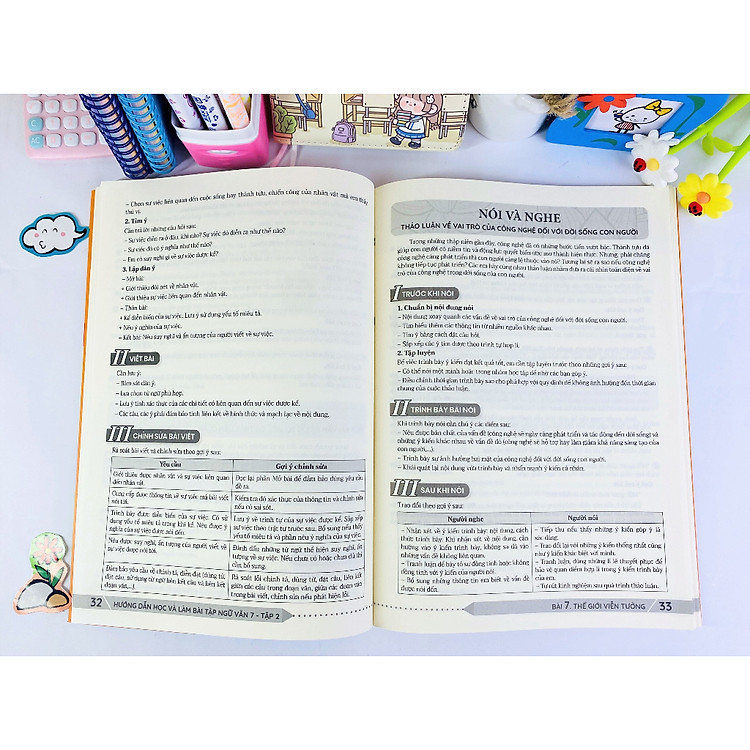 – Chọn sự việc liên quan đến cuộc sống hay thành tựu, chiến công của nhân vật mà em thấy
thú vị.
2. Tìm ý
Cần trả lời những câu hỏi sau:
– Sự việc diễn ra ở đâu, khi nào? Sự việc đó diễn ra như thế nào?
– Sự việc đó có ý nghĩa như thế nào?
– Em có suy nghĩ gì về sự việc được kể?
3. Lập dàn ý
– Mở bài:
+ Giới thiệu đôi nét về nhân vật.
+ Giới thiệu sự việc liên quan đến nhân vật.
– Thân bài:
+ Kể diễn biến của sự việc. Lưu ý sử dụng yếu tố miêu tả.
+ Nêu ý nghĩa của sự việc.
– Kết bài: Nêu suy nghĩ và ấn tượng của người viết về sự việc.
II VIẾT BÀI
Cần lưu ý:
– Bám sát dàn ý.
– Lựa chọn từ ngữ phù hợp.
– Lưu ý tính xác thực của các chi tiết có liên quan đến sự việc được kể.
– Các câu, các ý phải đảm bảo tính liên kết về hình thức và mạch lạc về nội dung.
III CHỈNH SỬA BÀI VIẾT
Rà soát bài viết và chỉnh sửa theo gợi ý sau:
Yêu cầu
Gợi ý chỉnh sửa
Giới thiệu được nhân vật và sự việc liên quan
đến nhân vật.
Đọc lại phần Mở bài để đảm bảo đúng yêu cầu
đề ra.
Cung cấp được thông tin về sự việc mà bài viết
nói tới.
Kiểm tra độ xác thực của thông tin và chỉnh sửa
nếu có sai sót.
Trình bày được diễn biến của sự việc. Có sử
dụng yếu tố miêu tả trong khi kể. Nêu được ý
nghĩa của sự việc.
Lưu ý về trình tự của sự việc được kể. Sắp xếp
sự việc theo trật tự trước sau. Bổ sung nếu thấy
yếu tố miêu tả và phần nêu ý nghĩa của sự việc.
Nêu được suy nghĩ, ấn tượng của người viết về
sự việc được nói tới.
Đánh dấu những từ ngữ thể hiện suy nghĩ, ấn
tượng về sự việc. Nếu chưa có hoặc chưa đủ thì
cần bổ sung.
Đảm bảo yêu cầu về chính tả, diễn đạt (dùng từ,
đặt câu, sử dụng từ ngữ liên kết câu và liên kết
đoạn văn,...)
Rà soát lỗi chính tả, dùng từ, đặt câu, liên kết
giữa các câu trong đoạn văn, giữa các đoạn văn
trong bài viết, chỉnh sửa nếu phát hiện lỗi.
32 HƯỚNG DẪN HỌC VÀ LÀM BÀI TẬP NGỮ VĂN 7 - TẬP 2
NÓI VÀ NGHE
THẢO LUẬN VỀ VAI TRÒ CỦA CÔNG NGHỆ ĐỐI VỚI ĐỜI SỐNG CON NGƯỜI
Trong những thập niên gần đây, công nghệ đã có những bước tiến vượt bậc. Thành tựu đã
giúp con người có niềm tin và động lực quyết biến ước mơ thành hiện thực. Nhưng, phải chăng
công nghệ càng phát triển thì con người càng lệ thuộc vào nó? Tương lai sẽ ra sao nếu công nghệ
không tiếp tục phát triển? Các em hãy cùng nhau thảo luận nhằm đưa ra cái nhìn toàn diện về vai
trò của công nghệ trong đời sống của con người.
I TRƯỚC KHI NÓI
1. Chuẩn bị nội dung nói
– Nội dung xoay quanh các vấn đề về vai trò của công nghệ đối với đời sống con người.
– Tìm hiểu thêm các thông tin từ nhiều nguồn khác nhau.
– Tìm ý bằng cách đặt câu hỏi.
– Sắp xếp các ý tìm được theo trình tự hợp lí.
2. Tập luyện
Để việc trình bày ý kiến đạt kết quả tốt, em cần tập luyện trước theo những gợi ý sau:
– Có thể nói một mình hoặc trong nhóm học tập để nhờ các bạn góp ý.
– Điều chỉnh thời gian trình bày sao cho phù hợp với quy định để không ảnh hưởng đến thời gian
chung của cuộc thảo luận.
II TRÌNH BÀY BÀI NÓI
Khi trình bày nói cần chú ý các điểm sau:
– Nêu được bản chất của vấn đề (công nghệ sẽ ngày càng phát triển và tác động đến đời sống) và
những ý kiến khác nhau về vấn đề đó (công nghệ sẽ hỗ trợ hay làm giảm khả năng sáng tạo của
con người,...).
– Trình bày sự ảnh hưởng hai mặt của công nghệ đối với đời sống con người.
– Khái quát lại nội dung vừa trình bày và nhấn mạnh ý kiến cá nhân.
III SAU KHI NÓI
Trao đổi theo gợi ý sau:
Người nghe
Người nói
– Nhận xét về ý kiến trình bày: nội dung, cách
thức trình bày. Khi nhận xét về nội dung, cần
hướng vào ý kiến trình bày, không sa đà vào
những vấn đề không liên quan.
– Tranh luận để bày tỏ sự đồng tình hoặc không
đồng tình với ý kiến của người nói.
– Bổ sung những thông tin em biết về vấn đề
được nói đến.
– Tiếp thu nếu thấy những ý kiến góp ý là xác
đáng.
– Trao đổi lại với những ý kiến thống nhất cũng
như ý kiến khác biệt với mình.
– Tranh luận, dùng những lí lẽ thuyết phục để
bảo vệ quan điểm hợp lí trong ý kiến trình bày
của mình.
– Tự rút kinh nghiệm sau quá trình thảo luận.
BÀI 7. THẾ GIỚI VIỄN TƯỞNG 33